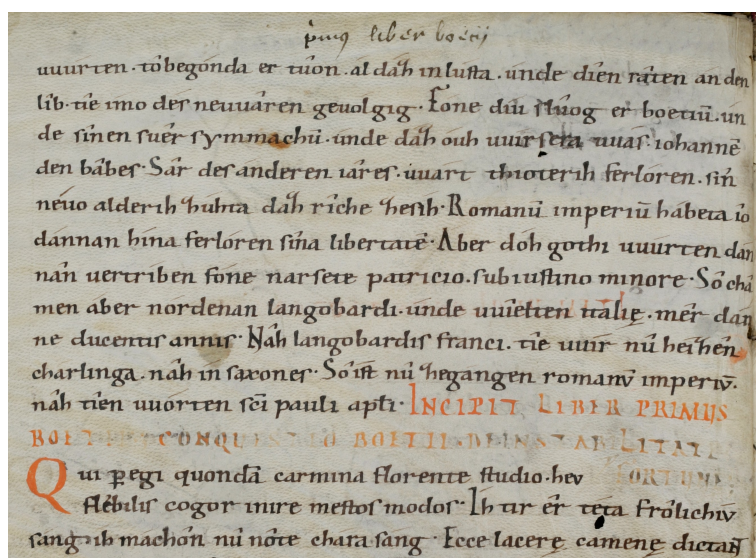 p̄mus liber boecij
uuurten· tobegonda er tûon· al dáh in lusta· únde díen râten an den
lîb· tîe imo des neuuâren geuolgig· Fone díu slûog er boetiū· un
de sînen suêr symmachū· únde dáh óuh uuírsera uuás· iohannē
den bâbes· Sâr des ánderen iâres· uuárt thioterih ferlóren· sîn
néuo alderih
dánnan hína ferlóren sîna libertatē· Áber dóh gothi uuúrten dán
nân uertríben fóne narsete patricio· sub iustino minore· Sô châ
men áber nórdenan langobardi· únde uuîelten italię· mêr dán
ne ducentis annis· Nâh langobardis franci· tîe uuír nû héizên
charlinga· nâh in saxones· Sô íst nû zegángen romanū imperiū·
nâh tîen uuórten sc̄i pauli apl̄i· INCIPIT LIBER PRIMUS
BOETII CONQUESTIO BOETII DE INSTABILITATE
Qui p̲egi quondā carmina florente studio· heu FORTUNE
flebilis cogor inire mestos modos· Ih tir êr téta frôlichiu
sáng· ih máchôn nû nôte cháraság· Ecce lacerę camene dictan̄t